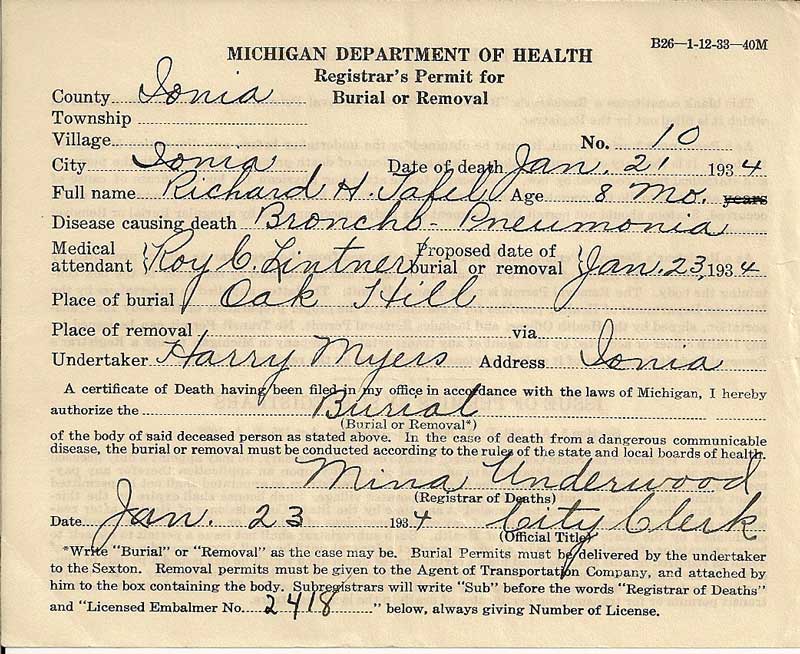 B26—1-12-33—40M
MICHIGAN DEPARTMENT OF HEALTH
Registrar's Permit for
Burial or Removal
County Ionia
Township
Village
No. 10
City Ionia Date of death Jan. 21 1934
Full name Richard H. Tafel Age 8 Mo. years
Disease causing death Broncho-Pneumonia
Medical attendant Roy C. Lintner Proposed date of burial or removal Jan. 23, 1934
Place of burial Oak Hill
Place of removal via
Undertaker Harry Myers Address Ionia
A certificate of Death having been filed in my office in accordance with the laws of Michigan, I hereby
authorize the Burial
(Burial or Removal*)
of the body of said deceased person as stated above. In the case of death from a dangerous communicable
disease, the burial or removal must be conducted according to the rules of the state and local boards of health.
Mina Underwood
(Registrar of Deaths)
Date Jan. 23 1934 City Clerk
(Official Title)
*Write "Burial" or "Removal" as the case may be. Burial Permits must be delivered by the undertaker
to the Sexton. Removal permits must be given to the Agent of Transportation Company, and attached by
him to the box containing the body. Subregistrars will write "Sub" before the words "Registrar of Deaths"
and "Licensed Embalmer No. 2418 " below, always giving Number of License.